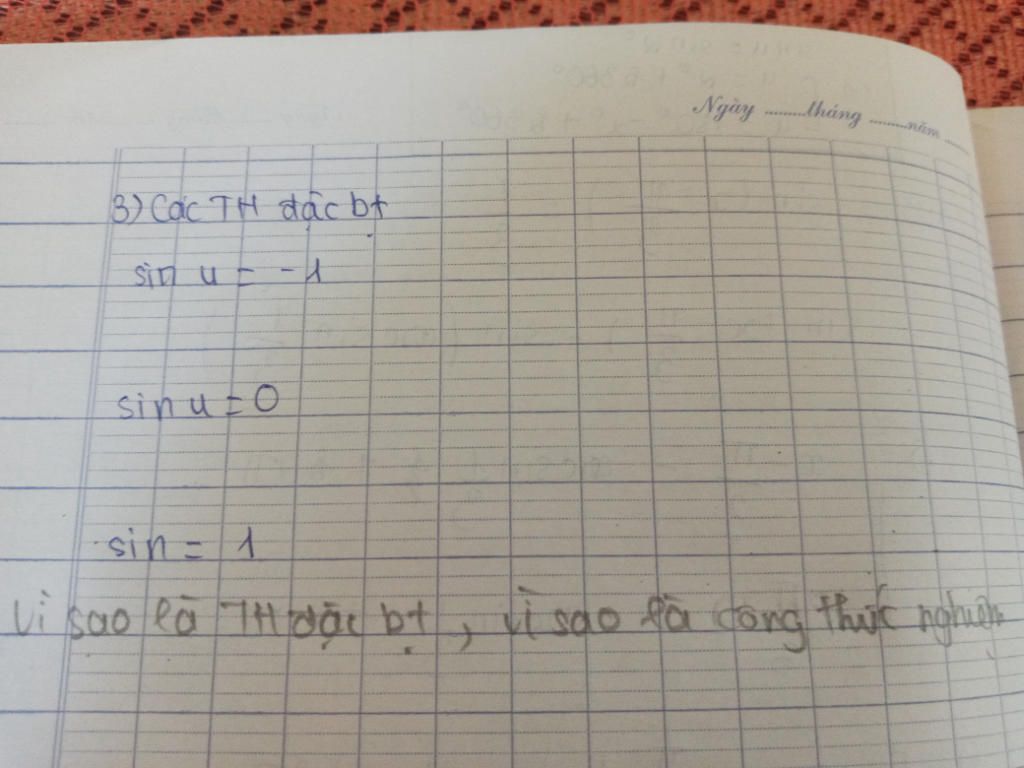 Ngày ......... tháng ......... năm
3) Các TH đặc bt
sin u = -1
sin u = 0
sin = 1
Vì sao là TH đặc bt, vì sao là công thức nghiệm